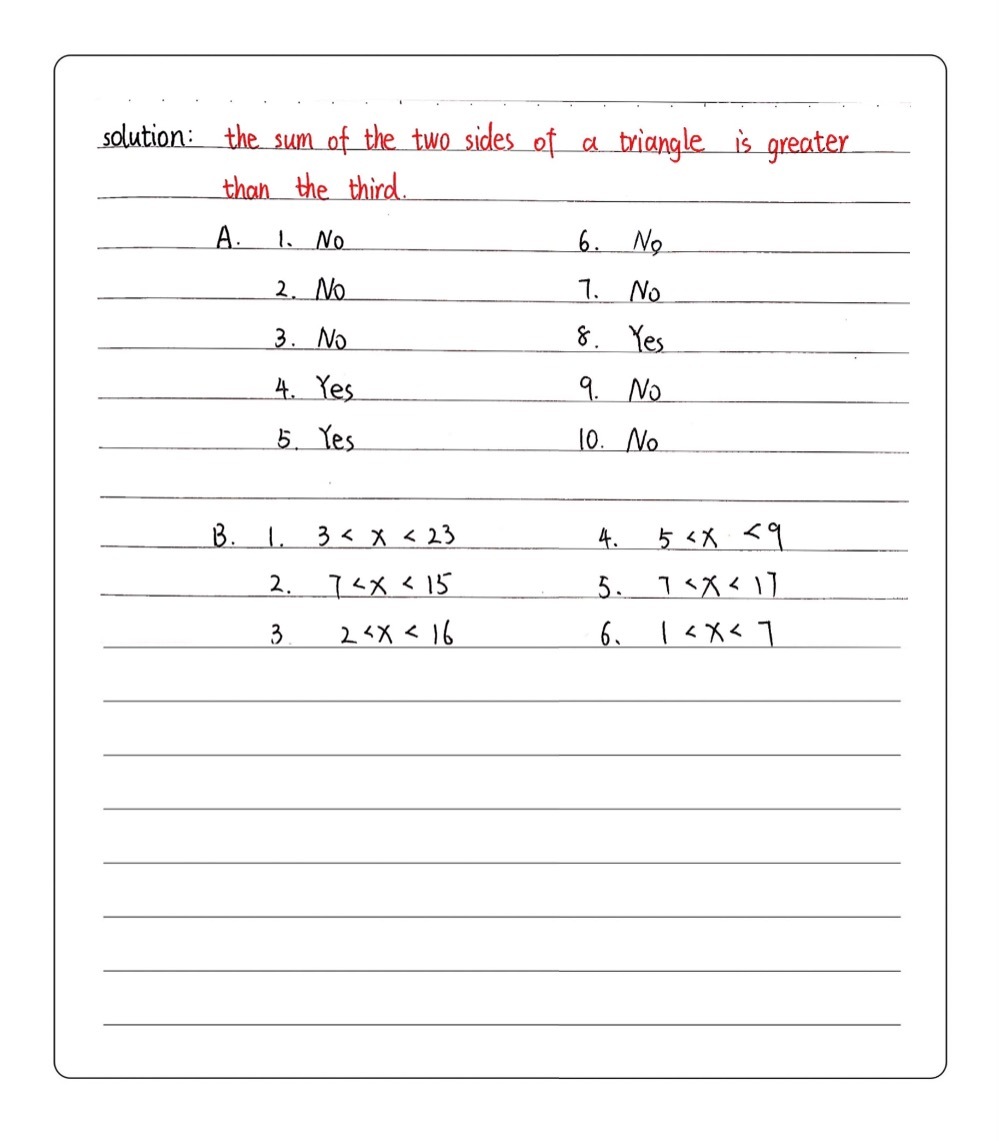 solution: the sum of the two sides of a triangle is greater
than the third.
A. 1. No 6. No
2. No 7. No
3. No 8. Yes
4. Yes 9. No
5. Yes 10. No
B. 1. 3 < x < 23 4. 5 < x < 9
2. 7 < x < 15 5. 7 < x < 17
3. 2 < x < 16 6. 1 < x < 7